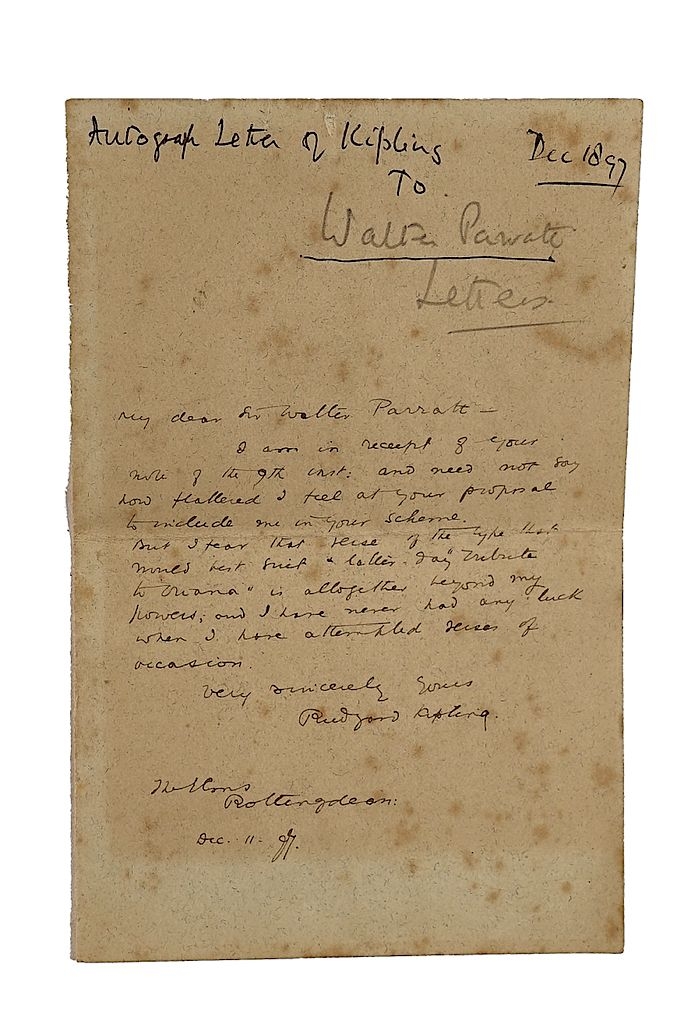 Autograph Letter of Kipling Dec 1897
To
Walter Parratt
Letters
My dear Sir Walter Parratt —
I am in receipt of your
note of the 9th inst: and need not say
how flattered I feel at your proposal
to include me in your scheme.
But I fear that verse of the type that
would best suit "latter-day tribute
to Oriana" is altogether beyond my
powers; and I have never had any luck
when I have attempted verses of
occasion.
Very sincerely yours
Rudyard Kipling.
The Elms
Rottingdean:
Dec. 11. 97.